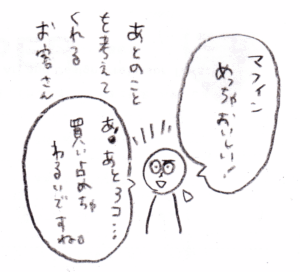 マフィン
めっちゃおいしい!
あとのこと
を考えて
くれる
お客さん
あ、あと3コ…
買い占めちゃ
わるいですね。